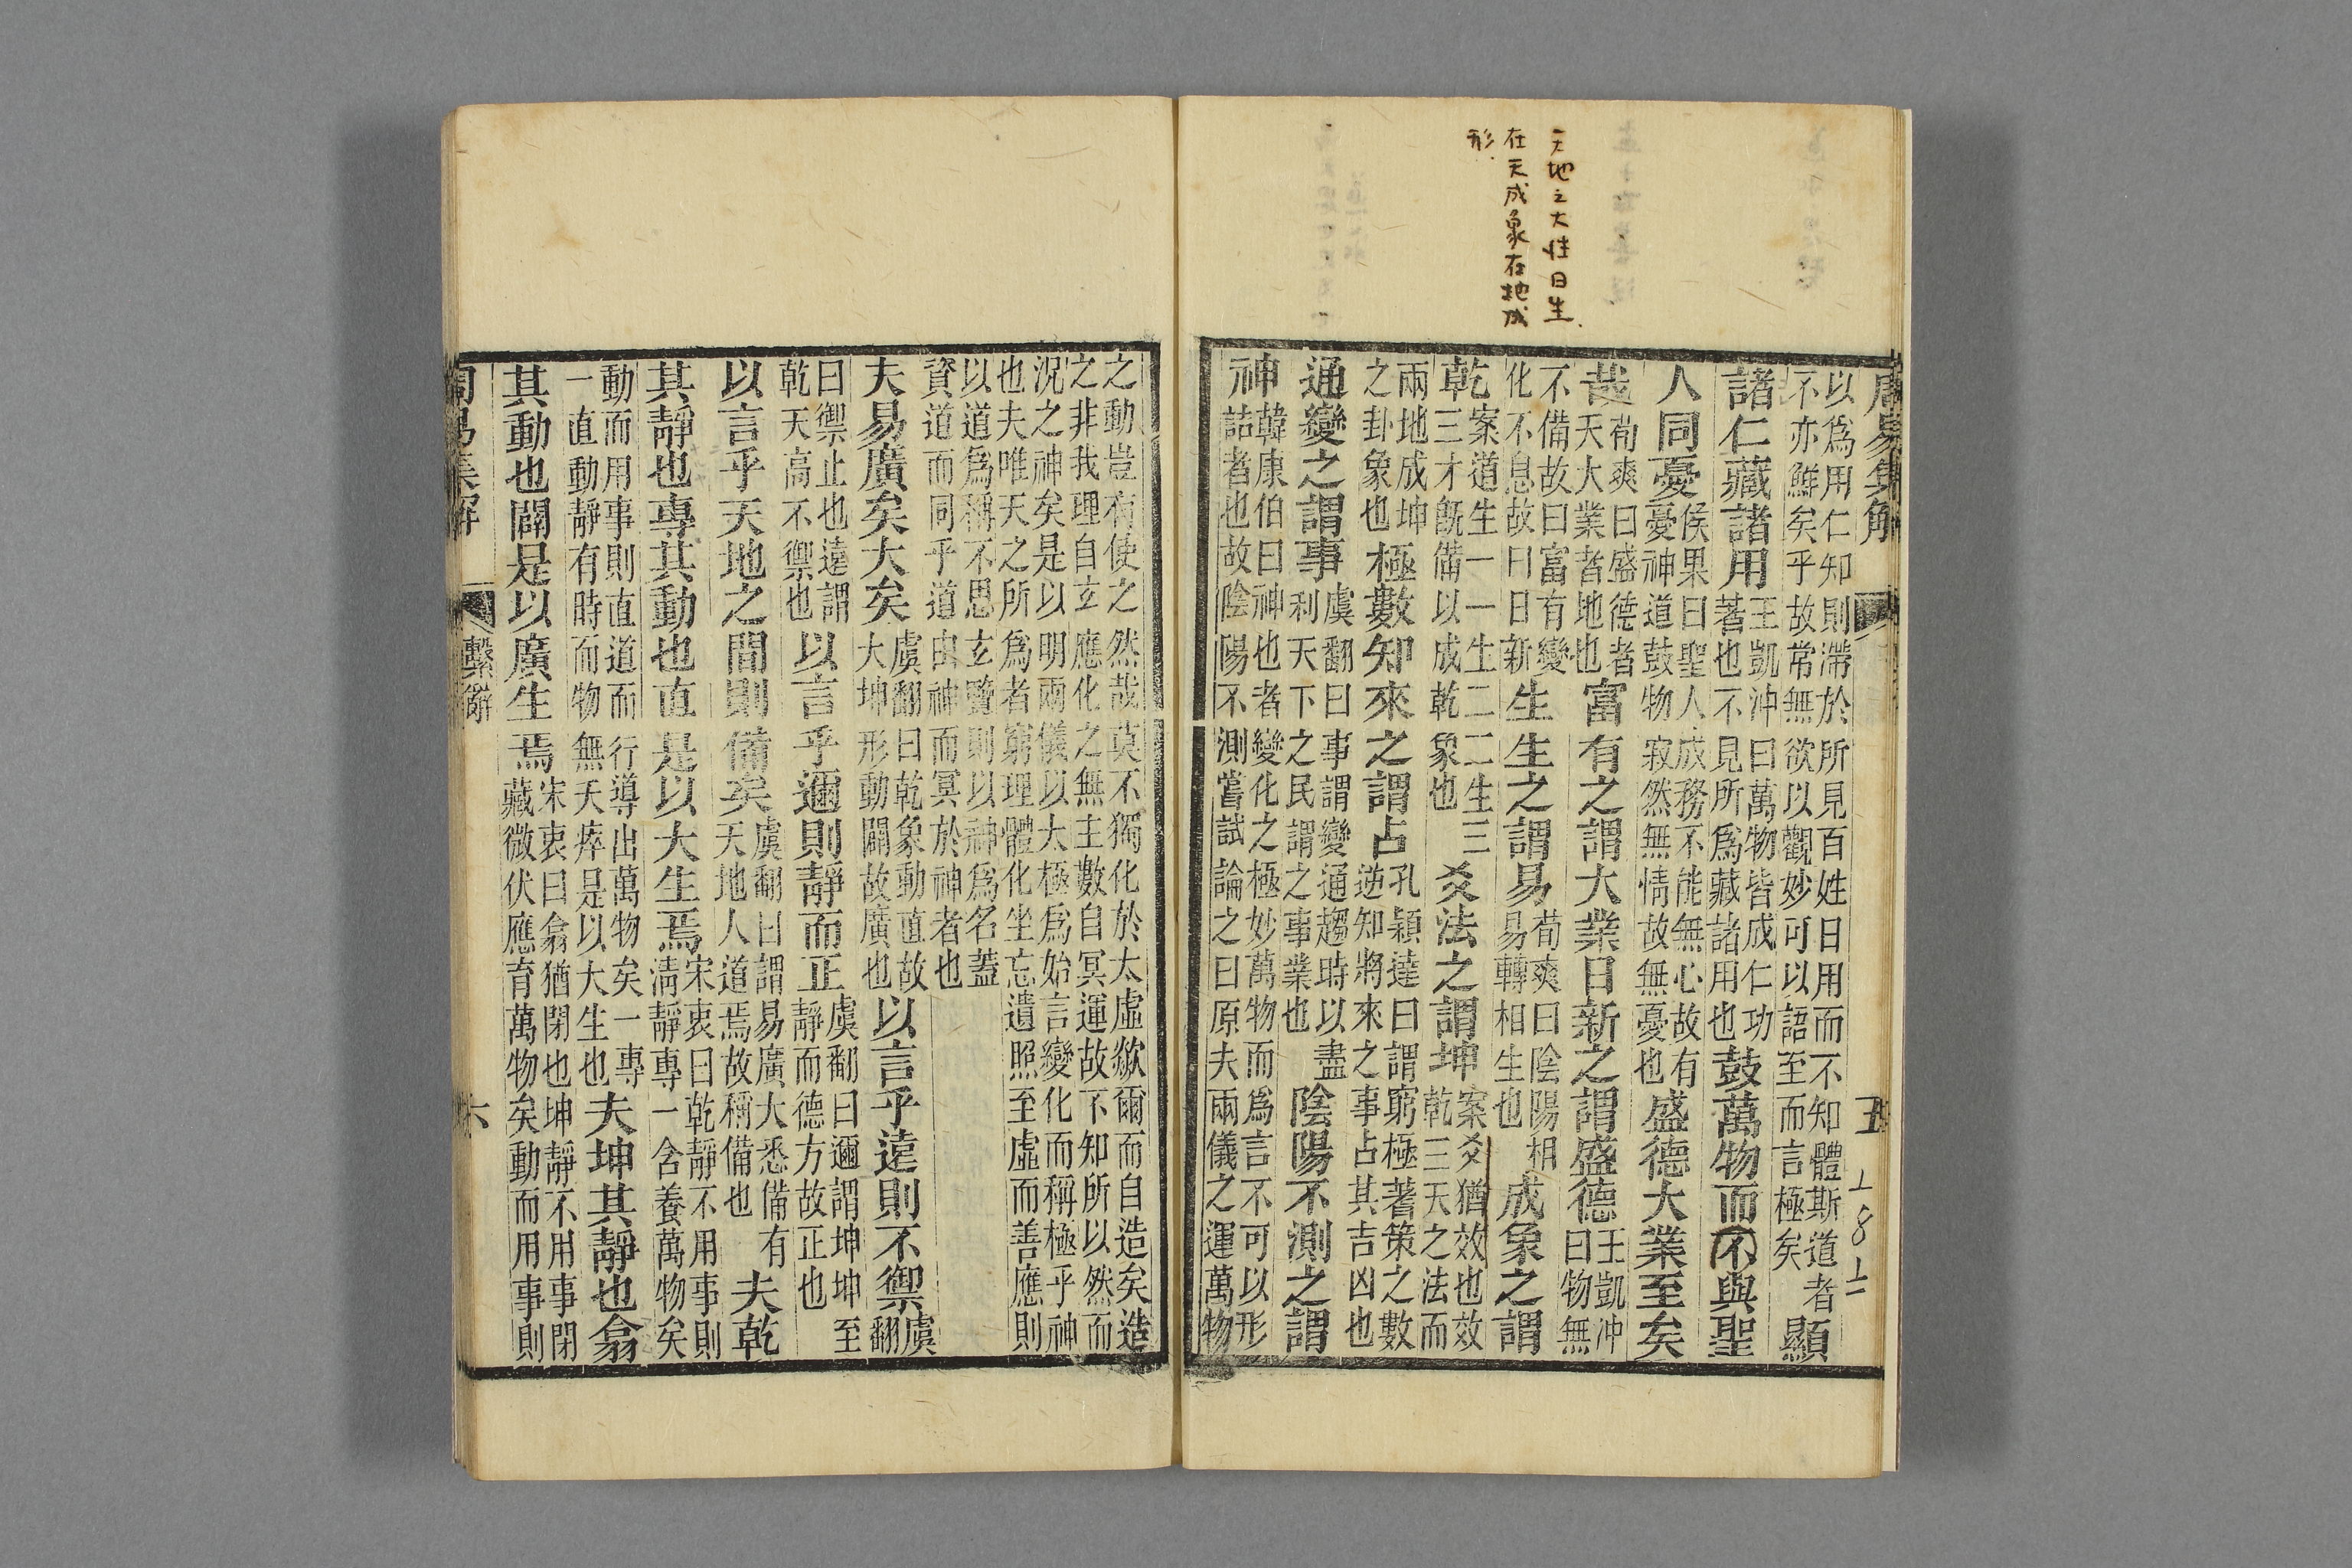 天地之大性日生
在天成象在地成
形
周易集解
五
以爲用仁知則滯於所見百姓日用而不知體斯道者
不亦鮮矣乎故常無欲以觀妙可以語至而言極矣
顯
諸仁藏諸用
王凱沖曰萬物皆成仁功
著也不見所爲藏諸用也
鼓萬物而不與聖
人同憂
侯果曰聖人成務不能無心故有
憂神道鼓物寂然無情故無憂也
盛德大業至矣
哉
荀爽曰盛德者
天大業者地也
富有之謂大業日新之謂盛德
王凱沖
曰物無
不備故曰富有變
化不息故曰日新
生生之謂易
荀爽曰陰陽相
易轉相生也
成象之謂
乾
案道生一一生二二生三
三才旣備以成乾象也
爻法之謂坤
案爻猶效也效
乾三天之法而
兩地成坤
之卦象也
極數知來之謂占
孔穎達曰謂窮極蓍策之數
逆知將來之事占其吉凶也
通變之謂事
虞翻曰事謂變通趨時以盡
利天下之民謂之事業也
陰陽不測之謂
神
韓康伯曰神也者變化之極妙萬物而爲言不可以形
詰者也故陰陽不測嘗試論之曰原夫兩儀之運萬物
之動豈有使之然哉莫不獨化於太虛歘爾而自造矣造
之非我理自玄應化之無主數自冥運故不知所以然而
況之神矣是以明兩儀以太極爲始言變化而稱極乎神
也夫唯天之所爲者窮理體化坐忘遺照至虛而善應則
以道爲稱不思玄覽則以神爲名蓋
資道而同乎道由神而冥於神者也
夫易廣矣大矣
虞翻曰乾象動直故
大坤形動闢故廣也
以言乎遠則不禦
虞
翻
曰禦止也遠謂
乾天高不禦也
以言乎邇則靜而正
虞翻曰邇謂坤坤至
靜而德方故正也
以言乎天地之間則備矣
虞翻曰謂易廣大悉備有
天地人道焉故稱備也
夫乾
其靜也專其動也直是以大生焉
宋衷曰乾靜不用事則
清靜專一含養萬物矣
動而用事則直道而行導出萬物矣一專
一直動靜有時而物無夭瘁是以大生也
夫坤其靜也翕
其動也闢是以廣生焉
宋衷曰翕猶閉也坤靜不用事閉
藏微伏應育萬物矣動而用事則
周易集解
繫辭
六